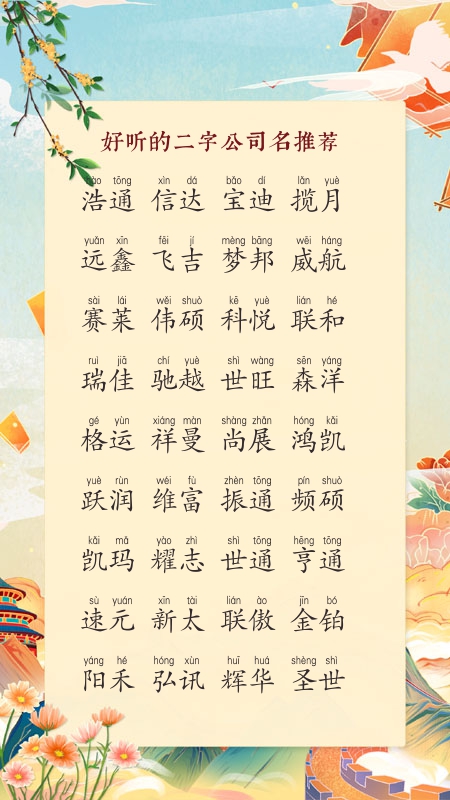 好听的二字公司名推荐
hào tōng xìn dá bǎo dí lǎn yuè
浩通 信达 宝迪 揽月
yuǎn xīn fēi jí mèng bāng wēi háng
远鑫 飞吉 梦邦 威航
sài lái wěi shuò kē yuè lián hé
赛莱 伟硕 科悦 联和
ruì jiā chí yuè shì wàng sēn yáng
瑞佳 驰越 世旺 森洋
gé yùn xiáng màn shàng zhǎn hóng kǎi
格运 祥曼 尚展 鸿凯
yuè rùn wéi fù zhèn tōng pín shuò
跃润 维富 振通 频硕
kǎi mǎ yào zhì shì tōng hēng tōng
凯玛 耀志 世通 亨通
sù yuán xīn tài lián ào jīn bó
速元 新太 联傲 金铂
yáng hé hóng xùn huī huá shèng shì
阳禾 弘讯 辉华 圣世